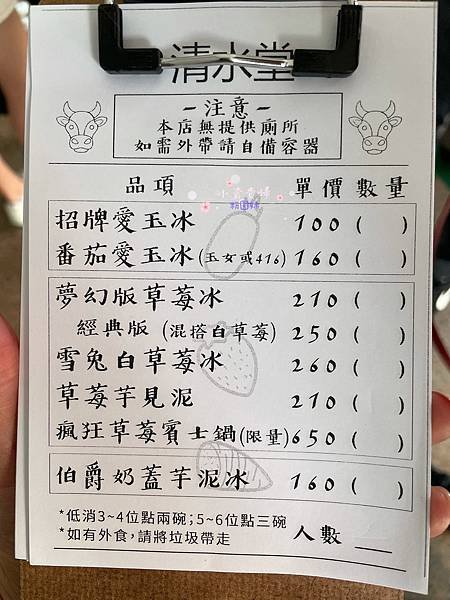 清水堂
－注意－
本店無提供廁所
如需外帶請自備容器
品項 單價 數量
招牌愛玉冰 100 ( )
番茄愛玉冰(玉女或416) 160 ( )
夢幻版草莓冰 210 ( )
經典版 (混搭白草莓) 250 ( )
雪兔白草莓冰 260 ( )
草莓芋見泥 210 ( )
瘋狂草莓賓士鍋(限量) 650 ( )
伯爵奶蓋芋泥冰 160 ( )
*低消3~4位點兩碗；5~6位點三碗
*如有外食，請將垃圾帶走 人數 __